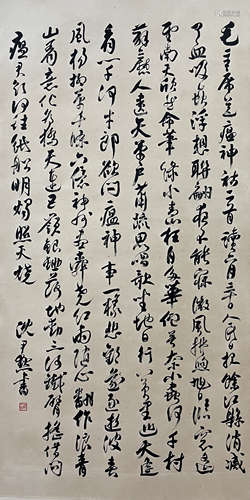 毛主席送瘟神詩二首讀六月三十日人民日報餘江縣消滅
了血吸蟲浮想聯翩夜不能寐微風拂煦旭日臨窗遙
望南天欣然命筆綠水青山枉自多華佗無奈小蟲何千村
薜荔人遺矢萬戶蕭疏鬼唱歌坐地日行八萬里巡天遙
看一千河牛郎欲問瘟神事一樣悲歡逐逝波春
風楊柳萬千條六億神州盡舜堯紅雨隨心翻作浪青
山着意化為橋天連五嶺銀鋤落地動三河鐵臂搖借問
瘟君欲何往紙船明燭照天燒
沈尹默書